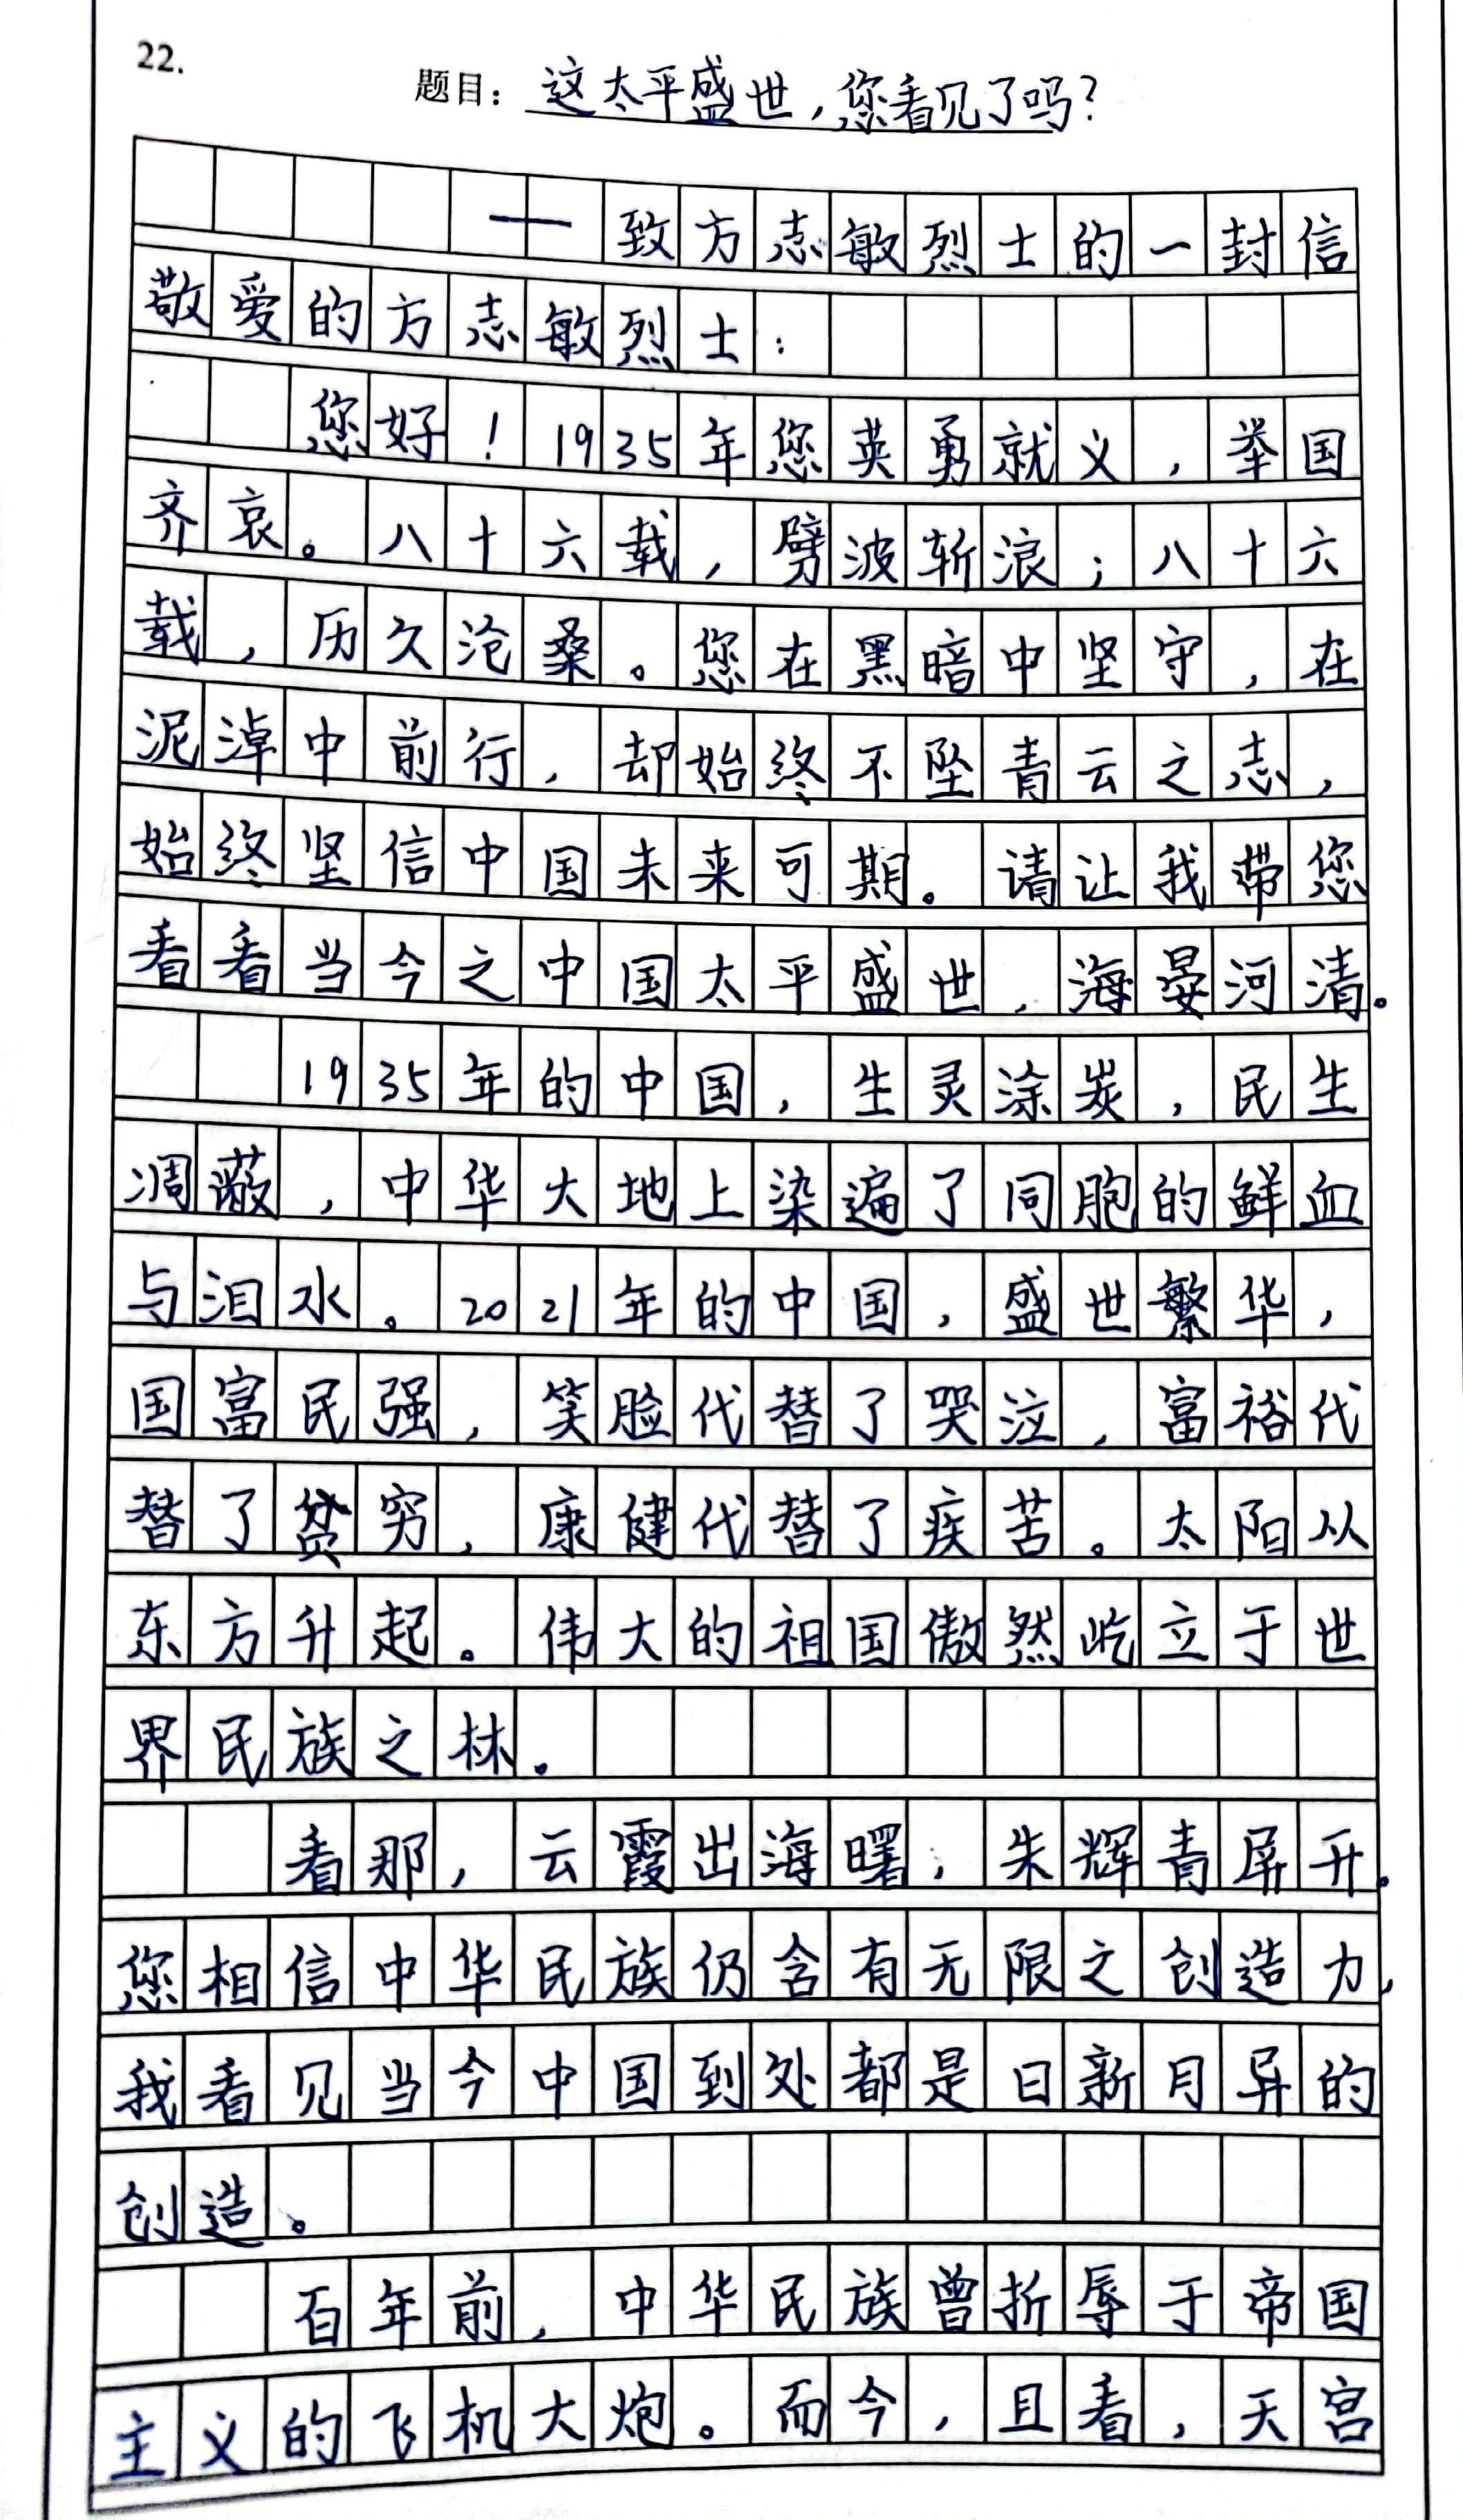 22.
题目：这太平盛世，您看见了吗？
——致方志敏烈士的一封信
敬爱的方志敏烈士：
您好！1935年您英勇就义，举国
齐哀。八十六载，劈波斩浪；八十六
载，历久沧桑。您在黑暗中坚守，在
泥淖中前行，却始终不坠青云之志，
始终坚信中国未来可期。请让我带您
看看当今之中国太平盛世，海晏河清。
1935年的中国，生灵涂炭，民生
凋蔽，中华大地上染遍了同胞的鲜血
与泪水。2021年的中国，盛世繁华，
国富民强，笑脸代替了哭泣，富裕代
替了贫穷，康健代替了疾苦。太阳从
东方升起。伟大的祖国傲然屹立于世
界民族之林。
看那，云霞出海曙，朱辉青屏开。
您相信中华民族仍含有无限之创造力，
我看见当今中国到处都是日新月异的
创造。
百年前，中华民族曾折辱于帝国
主义的飞机大炮。而今，且看，天宫